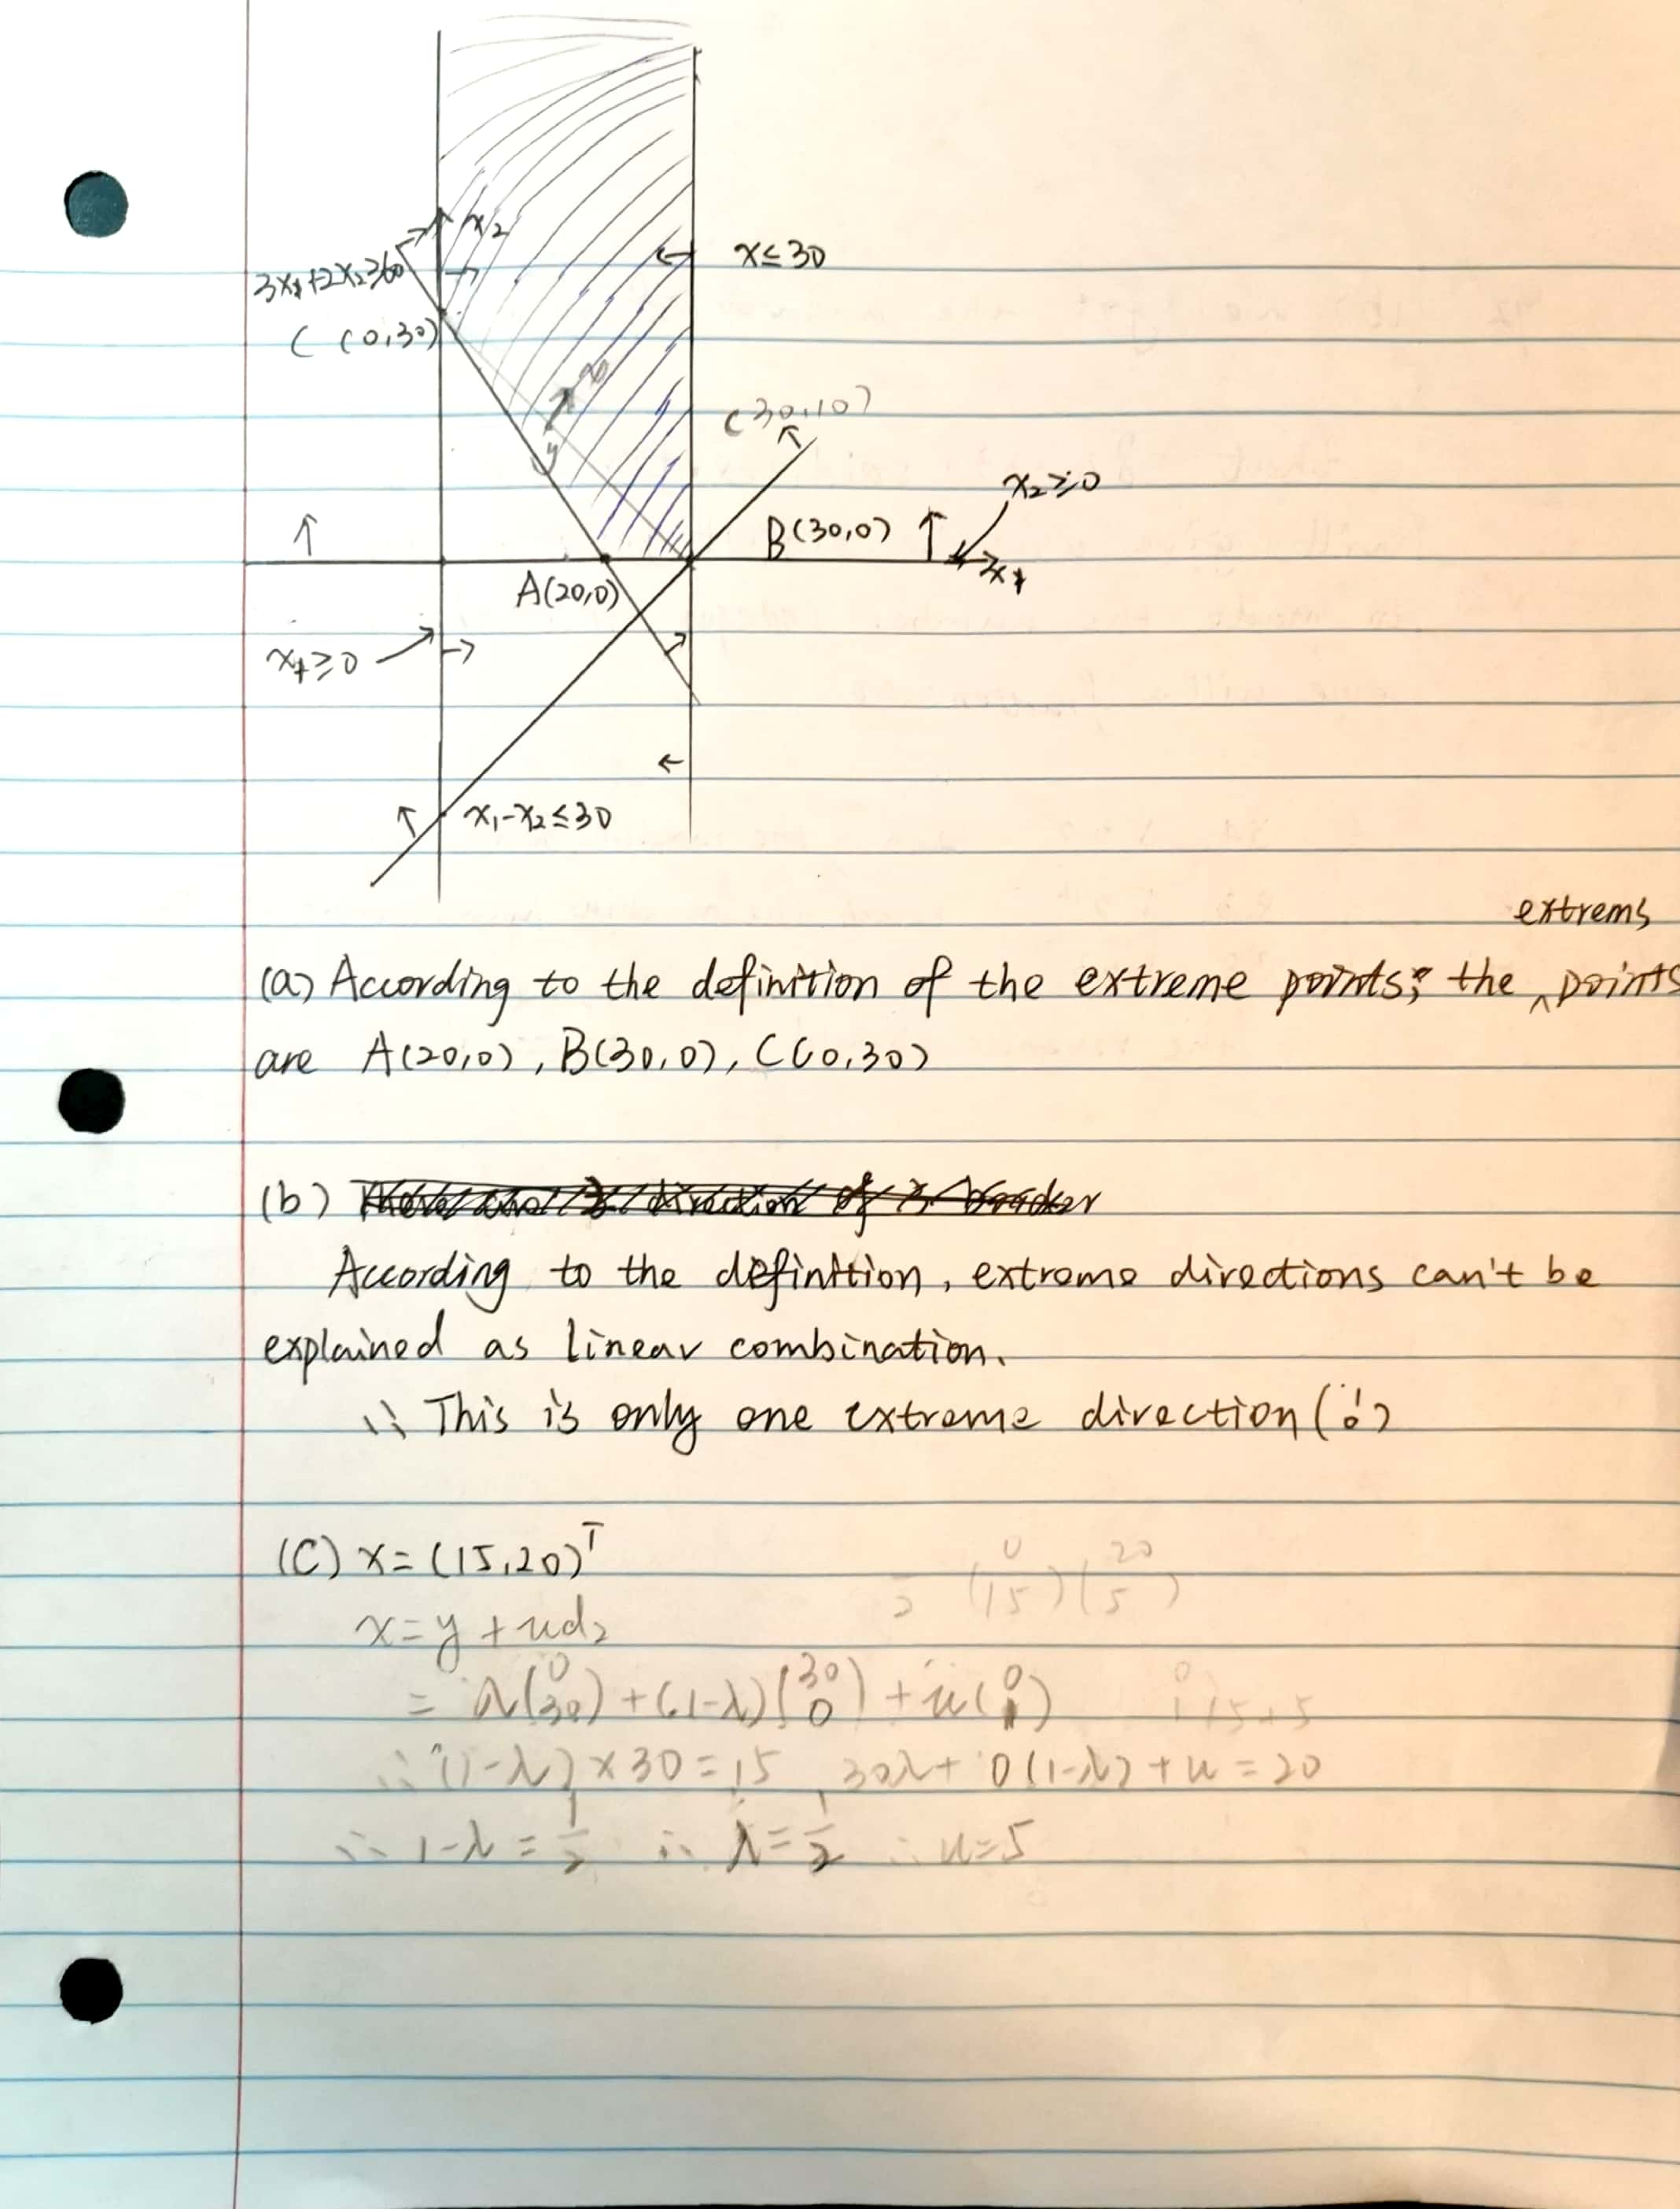 x₂
x≤30
3x₁+2x₂≥60
C (0,30)
x
y
(30,10)
x₂≥0
B(30,0)
x₁
A(20,0)
x₁≥0
x₁-x₂≤30
extrems
(a) According to the definition of the extreme points; the ^ points
are A(20,0), B(30,0), C(0,30)
(b)
According to the definition, extreme directions can't be
explained as linear combination.
∴ This is only one extreme direction (0 1)
(C) x=(15,20)ᵀ
(0 15)(20 5)
x=y+ud₂
= λ(0 30)+(1-λ)(30 0)+u(0 1)
∴ (1-λ)×30=15 30λ+0(1-λ)+u=20
∴ 1-λ=1/2 ∴ λ=1/2 ∴ u=5